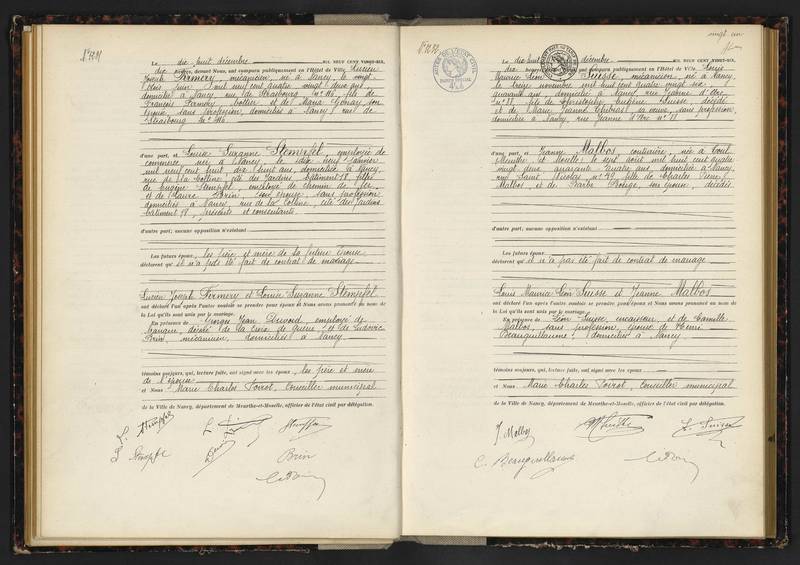 Le dix huit décembre MIL NEUF CENT VINGT-SIX,
dix heures, devant Nous, ont comparu publiquement en l'Hôtel de Ville Lucien
Joseph Fermery, mécanicien, né à Nancy, le vingt
trois juin mil neuf cent quatre vingt deux ans,
domicilié à Nancy rue de Strasbourg, n° 116, fils de
François Fermery, et de Maria son
épouse, sans profession, domiciliés à Nancy, rue de
Strasbourg n° 116
d'une part, et Louise Suzanne Stempfel, employée de
commerce, née à Nancy, le dix neuf janvier
mil neuf cent huit, dix huit ans, domiciliée à Nancy,
rue de la Colline, cité des Jardins bâtiment 18, fille
de Eugène Stempfel, employé de chemin de fer
et de Laure Brin, son épouse, sans profession,
domiciliés à Nancy, rue de la Colline, cité des Jardins
bâtiment 18, présents et consentants.
d'autre part; aucune opposition n'existant
Les futurs époux, les père et mère de la future épouse
déclarent qu'il n'a pas été fait de contrat de mariage
Lucien Joseph Fermery et Louise Suzanne Stempfel
ont déclaré l'un après l'autre vouloir se prendre pour époux et Nous avons prononcé au nom de
la Loi qu'ils sont unis par le mariage.
En présence de Georges Jean employé de
banque, décoré de la Croix de Guerre et de Ludovic
Brin, mécanicien, domiciliés à Nancy
témoins majeurs, qui, lecture faite, ont signé avec les époux, les père et mère
de l'épouse
et Nous Marie Charles Poirot, Conseiller municipal
de la Ville de Nancy, département de Meurthe-et-Moselle, officier de l'état civil par délégation.
Stempfel
Brin
vingt un
Le dix huit décembre MIL NEUF CENT VINGT-SIX,
dix heures, devant Nous, ont comparu publiquement en l'Hôtel de Ville Louis
Maurice Léon Suisse, mécanicien, né à Nancy,
le treize novembre mil huit cent quatre vingt six,
quarante ans, domicilié à Nancy rue Jeanne d'Arc,
n° 88, fils de Eugène Suisse, décédé
et de Marie Jeanne sa veuve, sans profession,
domiciliée à Nancy, rue Jeanne d'Arc n° 88
d'une part, et Jeanne Malbos, couturière, née à Toul
Meurthe et Moselle, le sept août mil huit cent quatre
vingt deux, quarante quatre ans, domiciliée à Nancy,
rue Saint Nicolas n° 49, fille de Charles Pierre
Malbos, et de Barbe son épouse, décédés
d'autre part; aucune opposition n'existant
Les futurs époux
déclarent qu'il n'a pas été fait de contrat de mariage
Louis Maurice Léon Suisse et Jeanne Malbos
ont déclaré l'un après l'autre vouloir se prendre pour époux et Nous avons prononcé au nom de
la Loi qu'ils sont unis par le mariage.
En présence de Léon Suisse, encaisseur, et de Camille
Malbos, sans profession, épouse de Henri
domiciliés à Nancy
témoins majeurs, qui, lecture faite, ont signé avec les époux
et Nous Marie Charles Poirot, Conseiller municipal
de la Ville de Nancy, département de Meurthe-et-Moselle, officier de l'état civil par délégation.
J. Malbos
L. Suisse